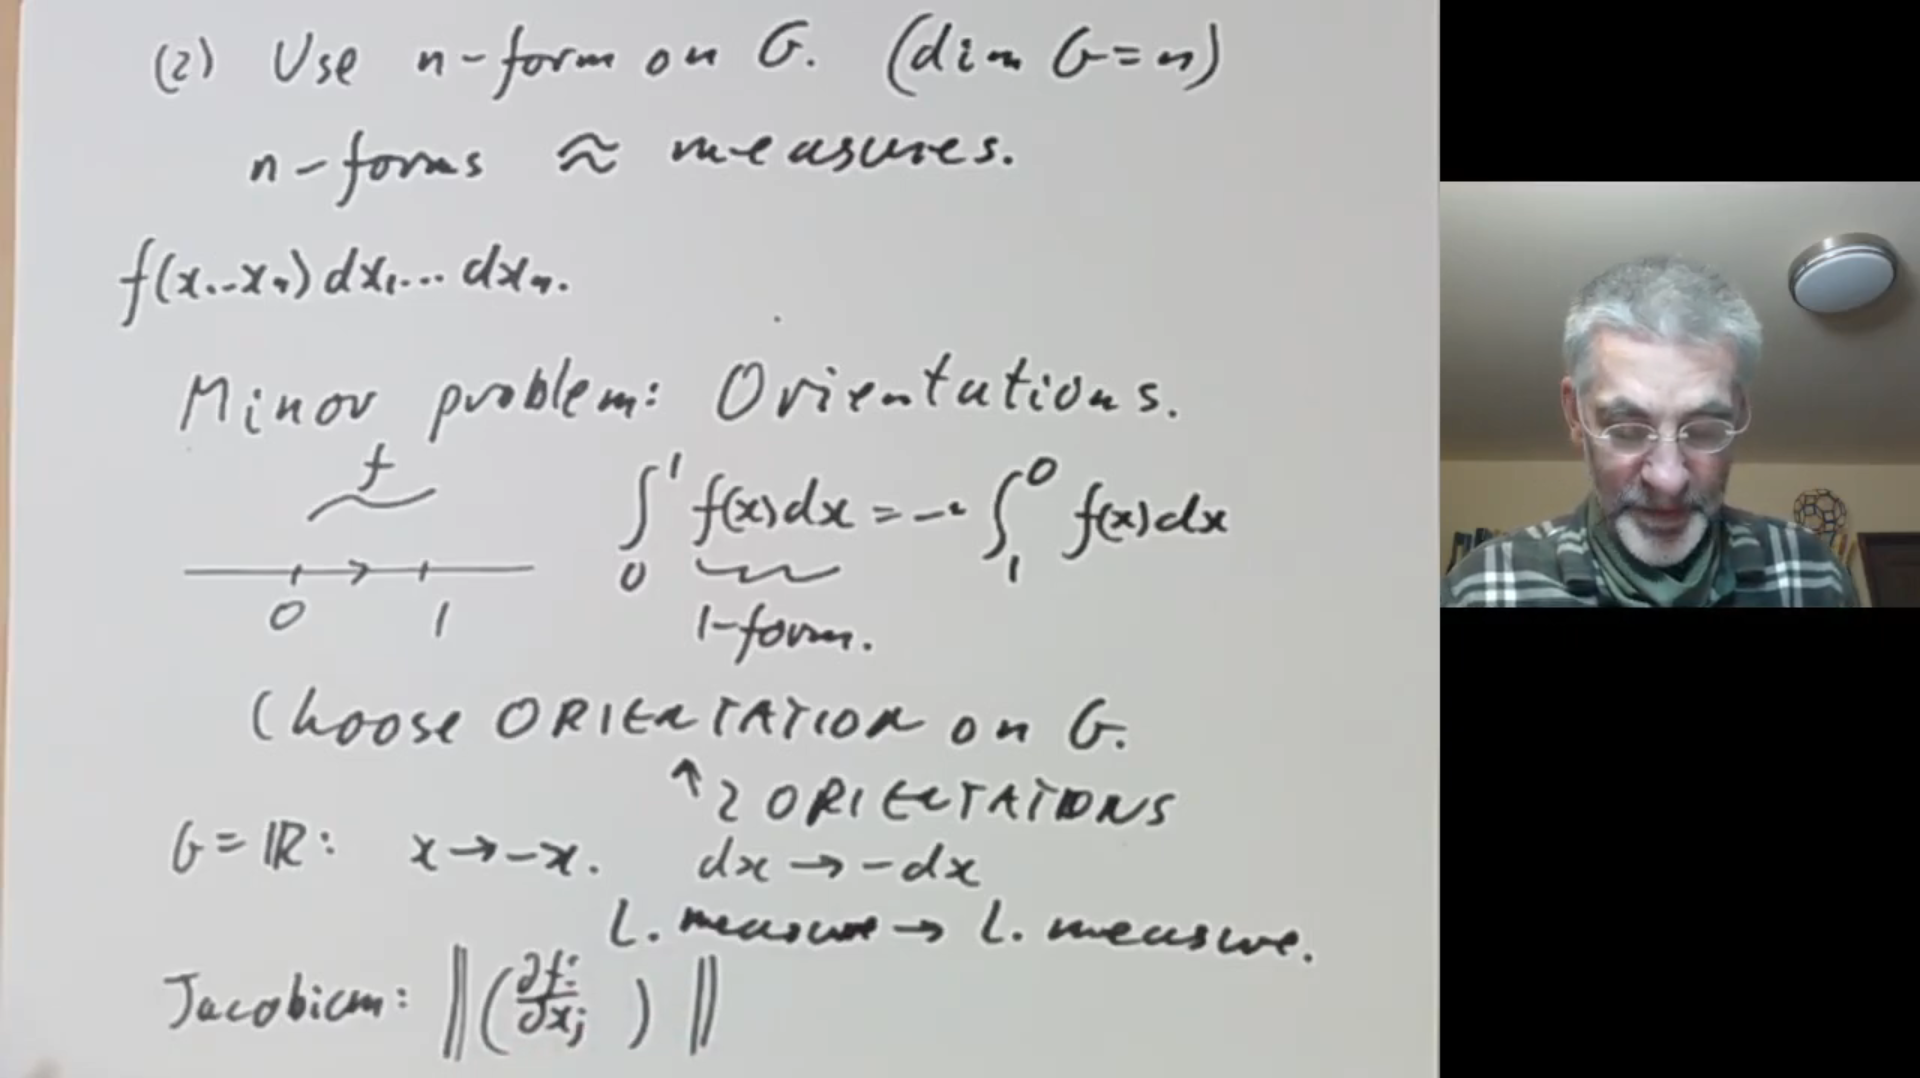 (2) Use n-form on G. (dim G=n)
n-forms ≈ measures.
f(x₁..xₙ)dx₁...dxₙ.
Minor problem: Orientations.
f
∫₀¹ f(x)dx = - ∫₁⁰ f(x)dx
0 1
1-form.
Choose ORIENTATION on G.
↑ 2 ORIENTATIONS
G=ℝ: x→-x. dx→-dx
L. measure → L. measure.
Jacobian: ‖(∂fᵢ/∂xⱼ)‖